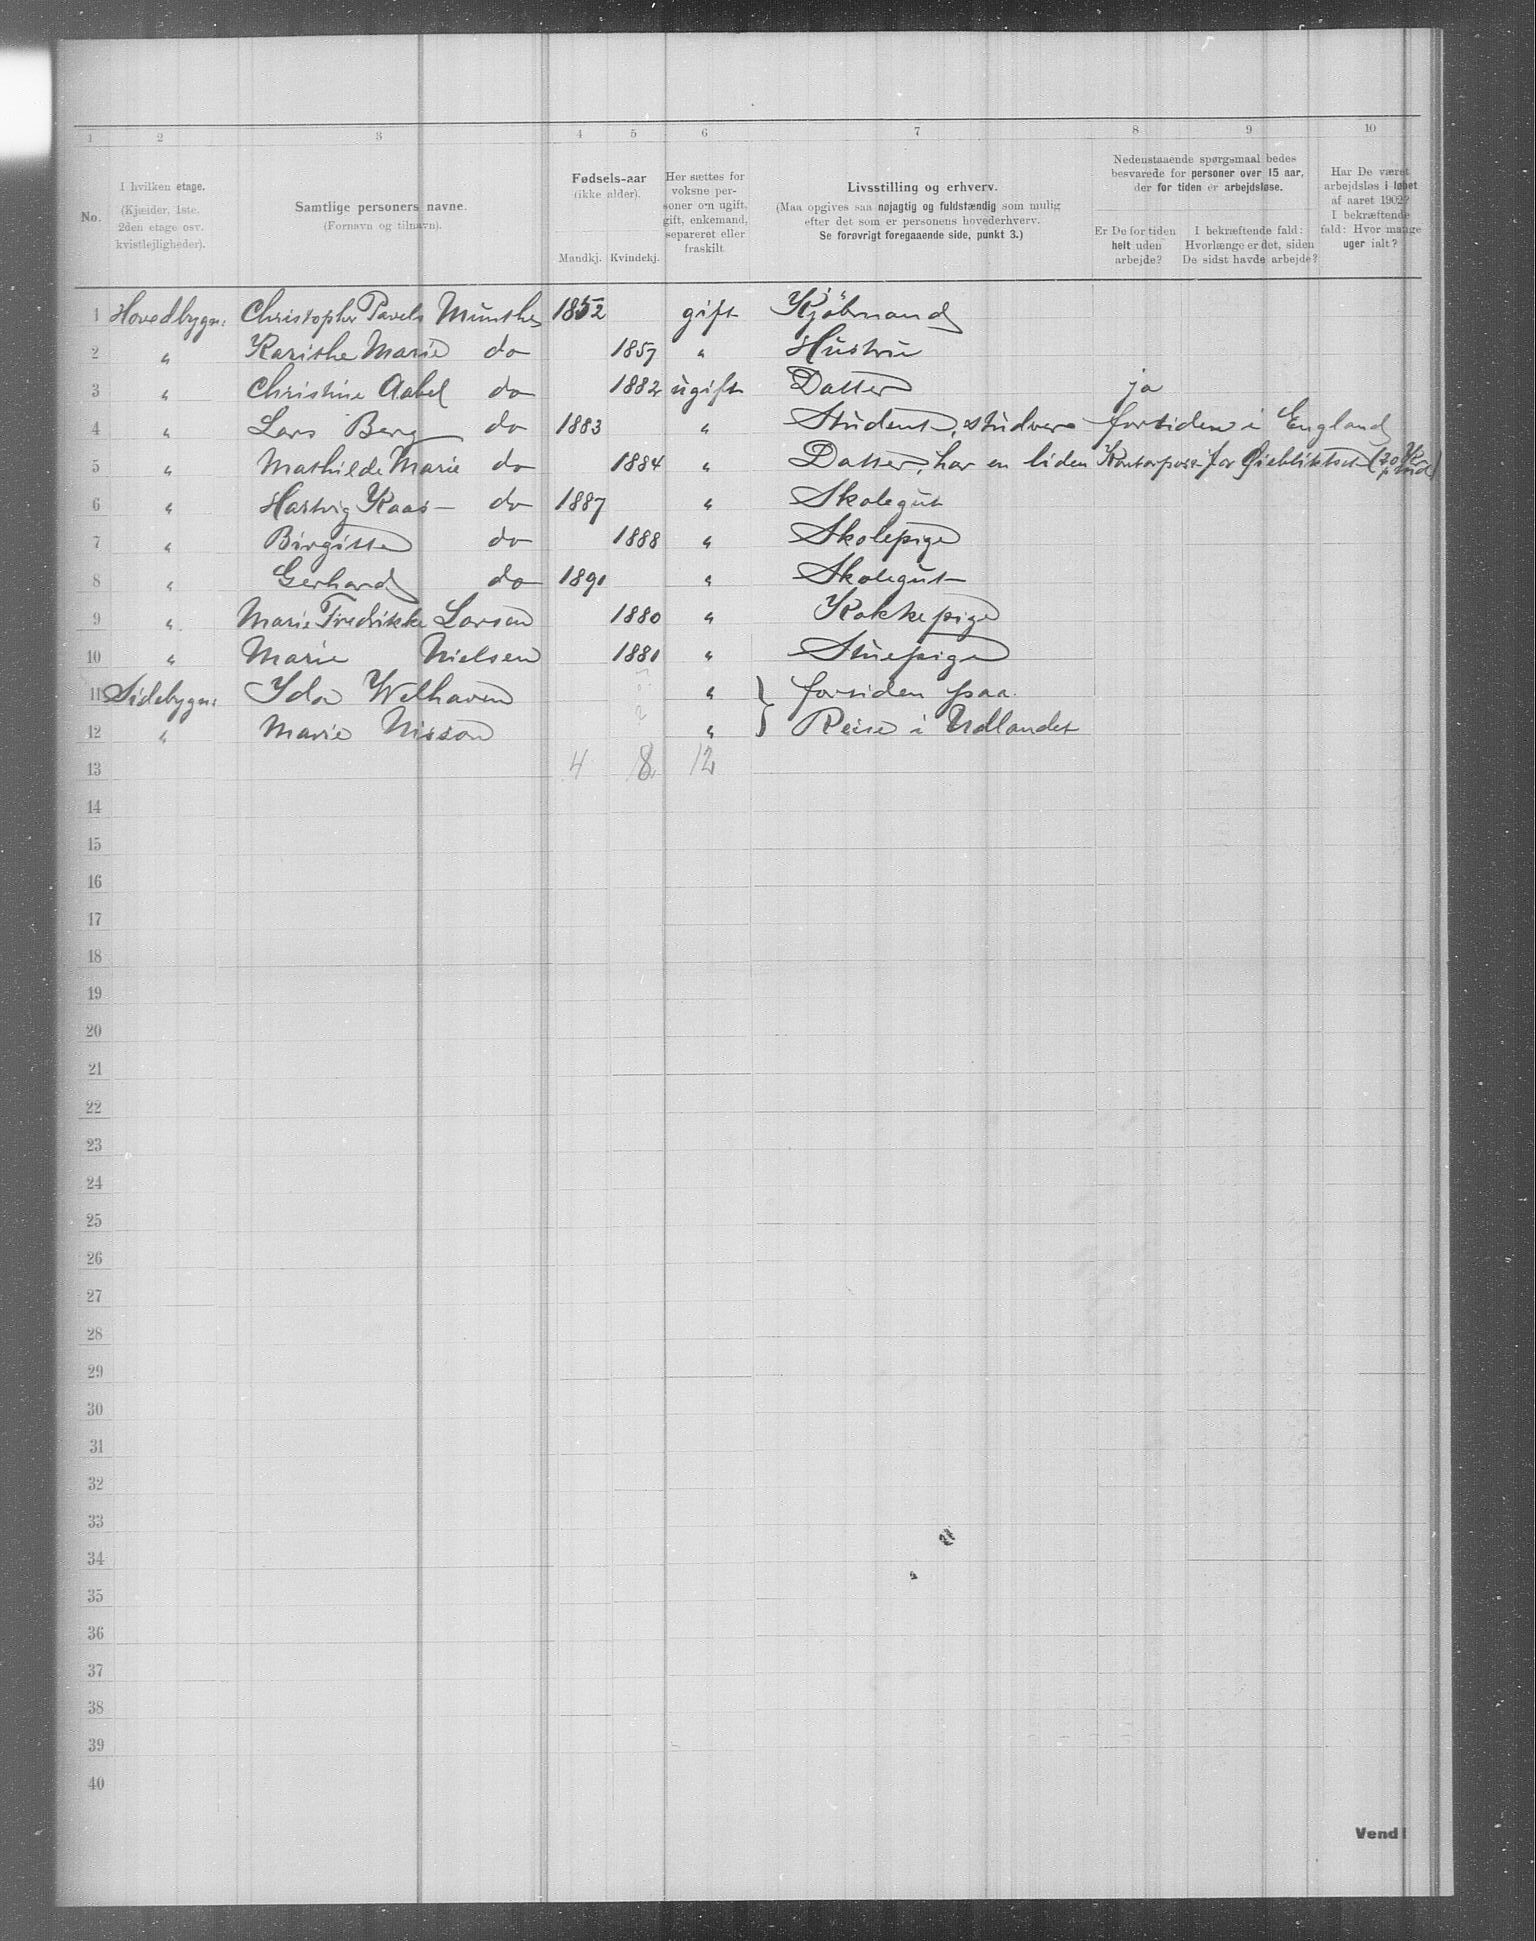 1 2 3 4 5 6 7 8 9 10
No.
I hvilken etage.
(Kjælder, 1ste,
2den etage osv.
kvistlejligheder).
Samtlige personers navne.
(Fornavn og tilnavn).
Fødsels-aar
(ikke alder).
Mandkj. Kvindekj.
Her sættes for
voksne per-
soner om ugift,
gift, enkemand,
separeret eller
fraskilt
Livsstilling og erhverv.
(Maa opgives saa nøjagtig og fuldstændig som mulig
efter det som er personens hovederhverv.
Se forøvrigt foregaaende side, punkt 3.)
Nedenstaaende spørgsmaal bedes
besvarede for personer over 15 aar,
der for tiden er arbejdsløse.
Er De for tiden
helt uden
arbejde?
I bekræftende fald:
Hvorlænge er det, siden
De sidst havde arbejde?
Har De været
arbejdsløs i løbet
af aaret 1902?
I bekræftende
fald: Hvor mange
uger ialt?
1 Hovedbygn: Christopher Pavels Munthe 1852 gift Kjöbmand
2 " Marie do 1857 " Hustru
3 " Christine Aabel do 1882 ugift Datter ja
4 " Lars Berg do 1883 " Student, fortiden i England
5 " Mathilde Marie do 1884 " Datter, har en liden Kontorpost for
6 " Hartvig Kaas do 1887 " Skolegut
7 " Birgitte do 1888 " Skolepige
8 " Gerhard do 1890 " Skolegut
9 " Marie Fredrikke Larsen 1880 " Kokkepige
10 " Marie Nielsen 1881 " Stuepige
11 Sidebygn: Ida Welhaven " } fortiden paa
12 " Marie Nissen " } Reise i Udlandet
13 4 8 12
14
15
16
17
18
19
20
21
22
23
24
25
26
27
28
29
30
31
32
33
34
35
36
37
38
39
40
Vend!